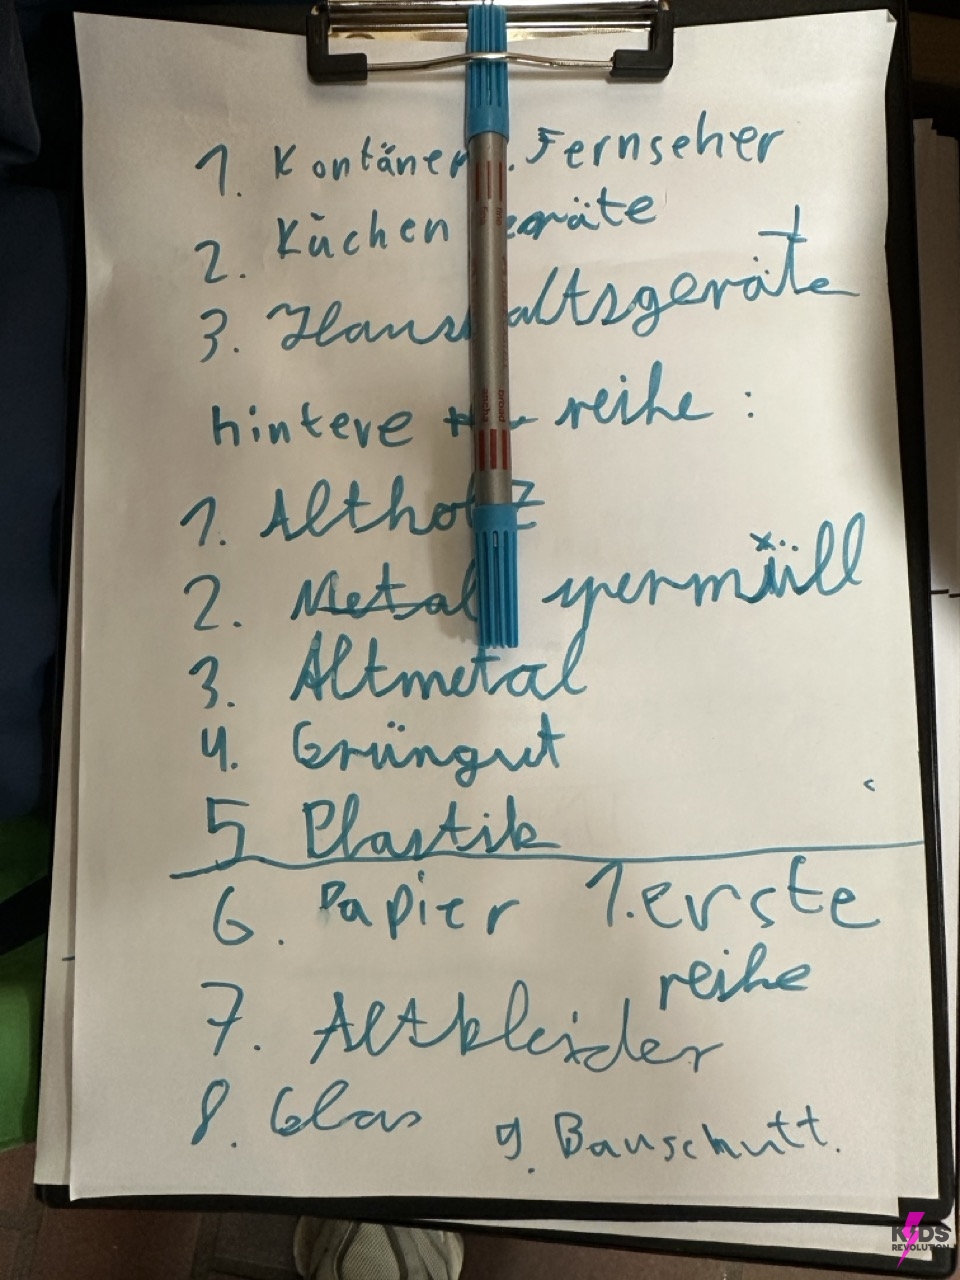 1. Kontäner. Fernseher
2. Küchen geräte
3. Haushaltsgeräte
hintere reihe :
1. Altholz
2. Metal spermüll
3. Altmetal
4. Grüngut
5 Plastik
6. Papier 1. erste
reihe
7. Altkleider
8. Glas 9. Bauschutt.
fine
broad
KIDS
REVOLUTION